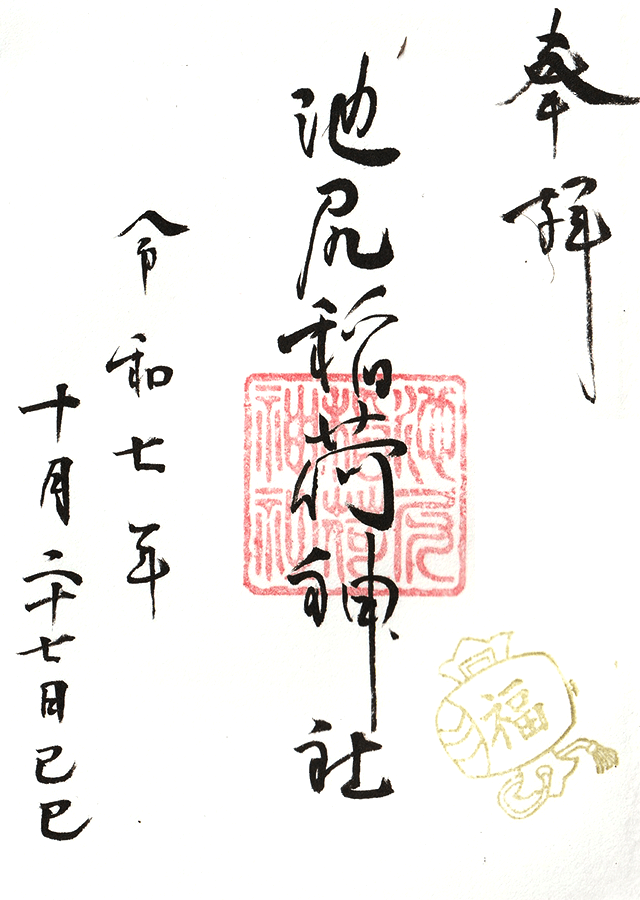 奉拝
池尻稲荷神社
池尻稲荷神社
令和七年
十月二十七日己巳
福